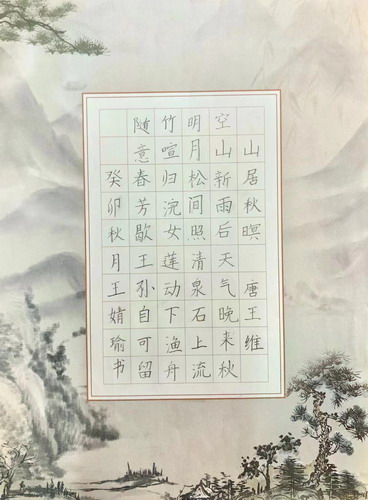 山居秋暝 唐王维
空山新雨后天气晚来秋
明月松间照清泉石上流
竹喧归浣女莲动下渔舟
随意春芳歇王孙自可留
癸卯秋月王婧瑜书